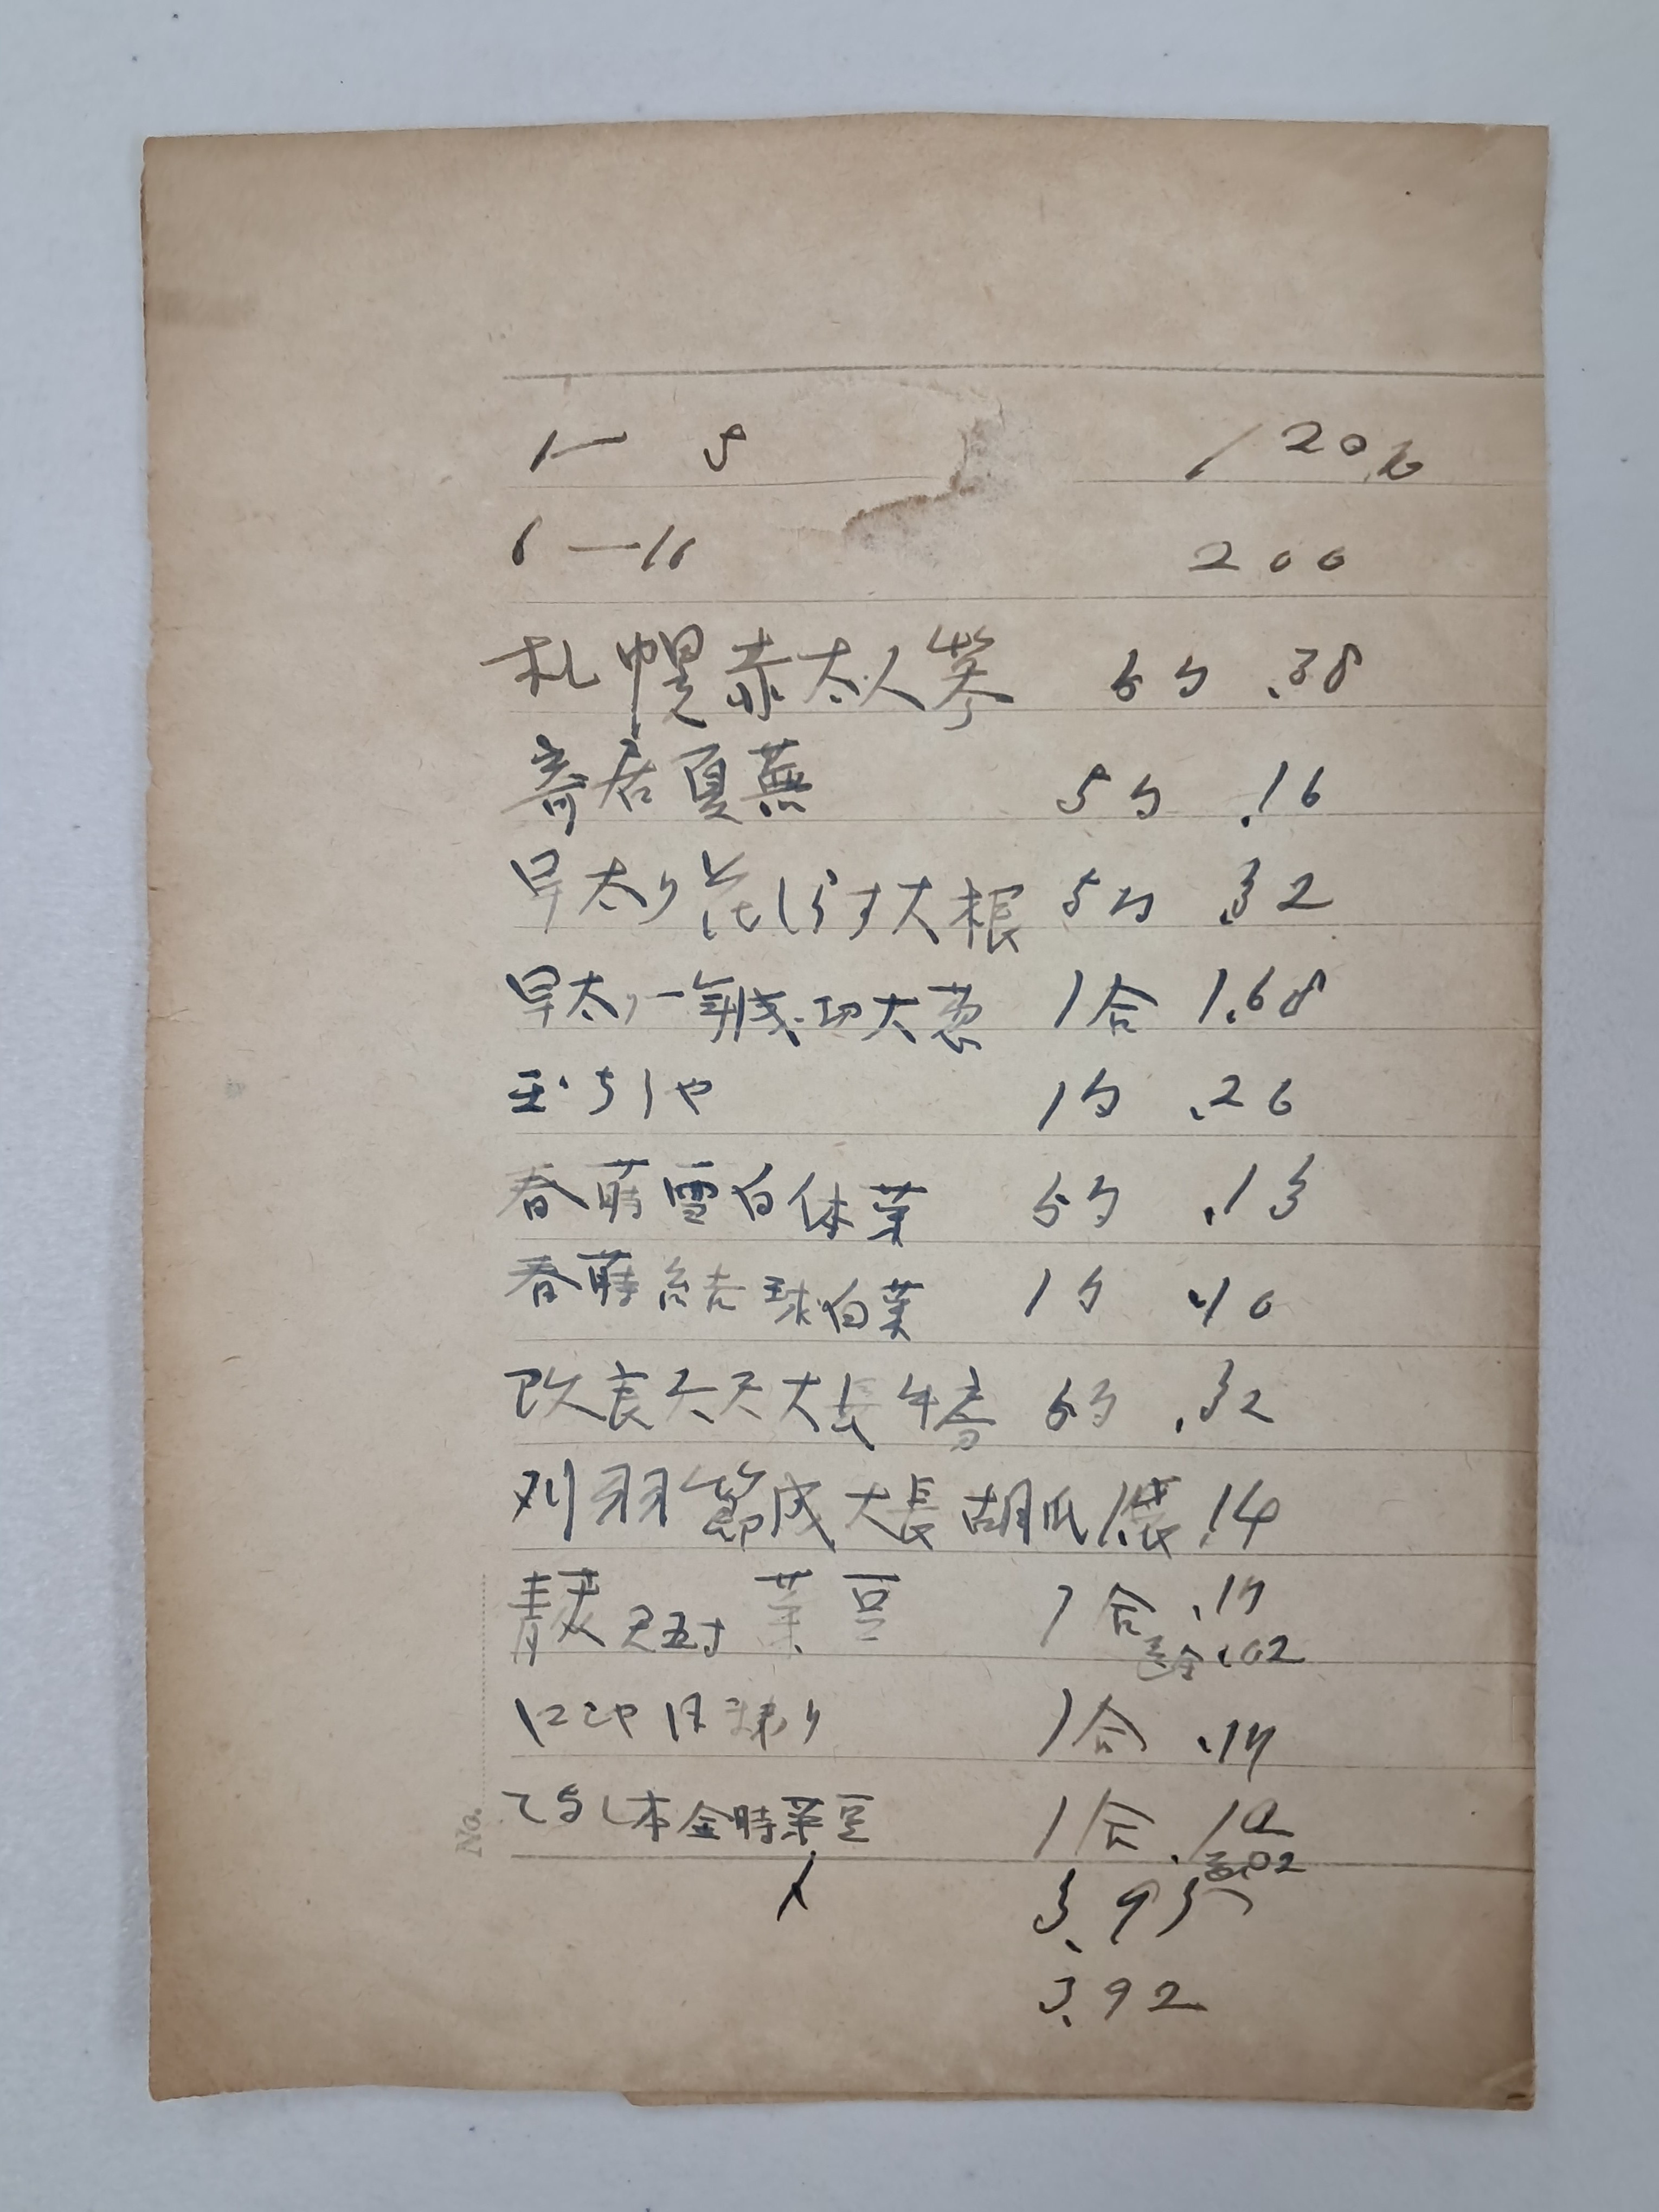 1— 5 120
6—10 200
札幌赤太人参 5勺 .38
寄居夏蕪 5勺 .16
早太り花しらず大根 5勺 .32
早太り一年成功大葱 1合 1.68
玉ちしや 1勺 .26
春蒔雪白体菜 5勺 .13
春蒔結球白菜 1勺 .10
改良大大大長牛蒡 5勺 .32
刈羽節成大長胡瓜 1袋 .14
尺五寸菜豆 1合 .17
.02
1合 .17
てなし本金時菜豆 1合 .12
.02
3.95
3.92
No.